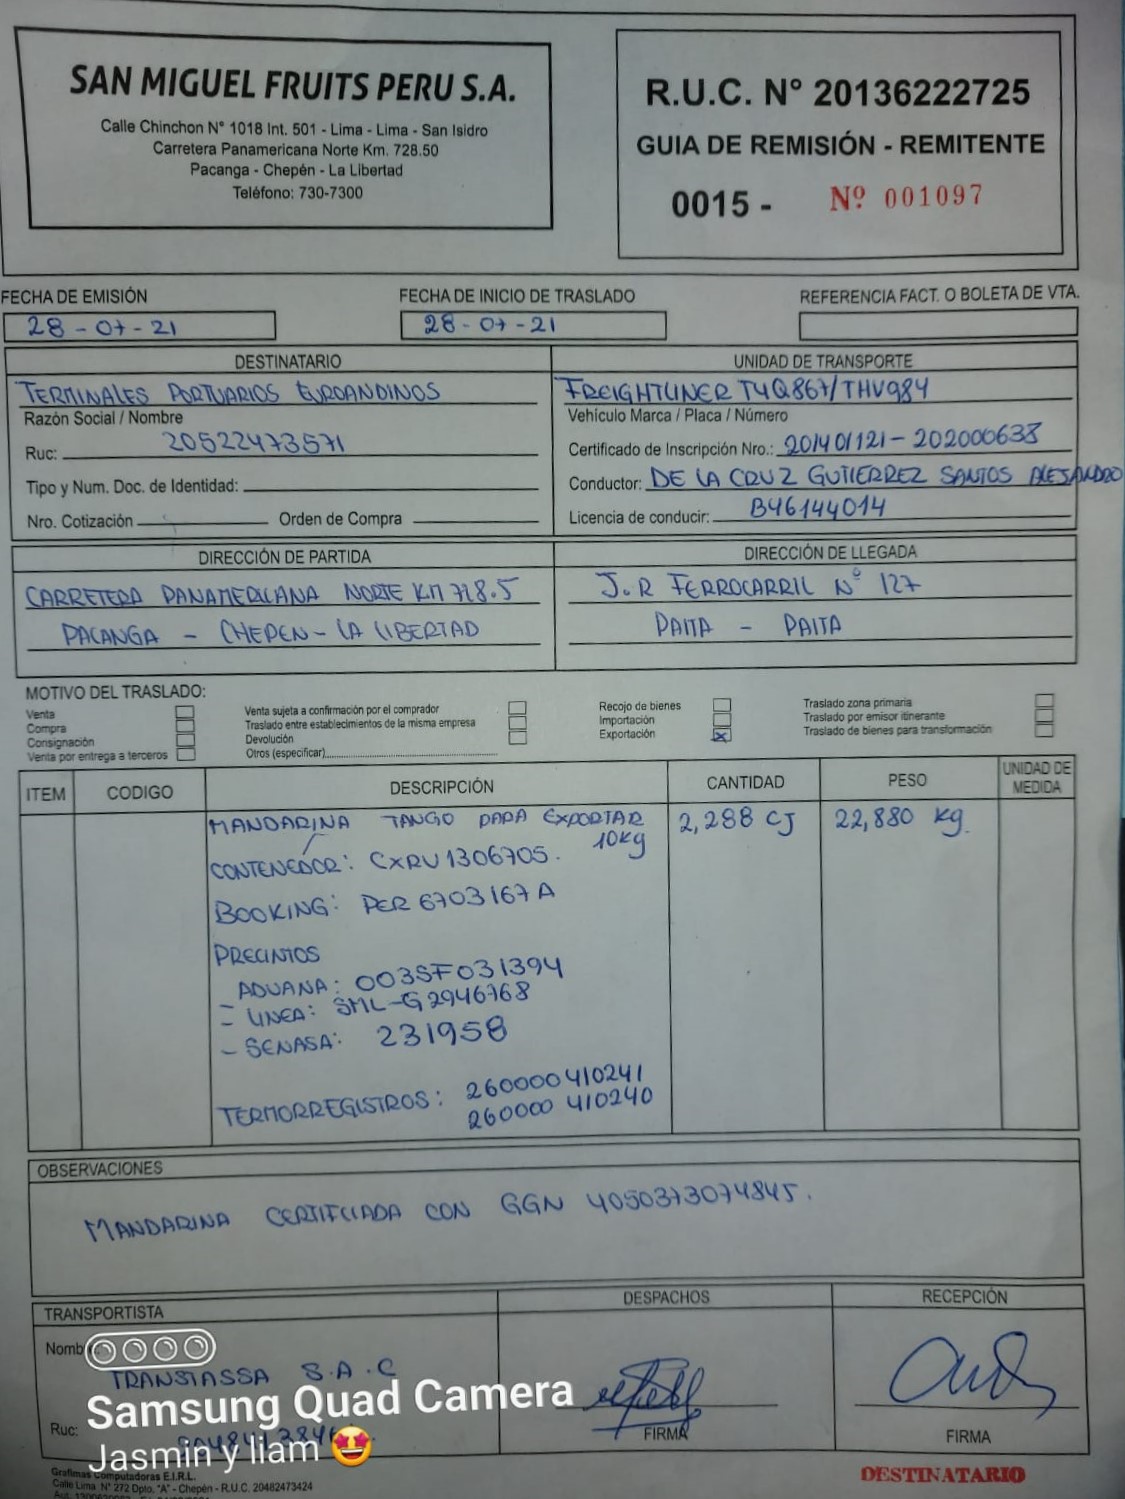 SAN MIGUEL FRUITS PERU S.A.
Calle Chinchon N° 1018 Int. 501 - Lima - Lima - San Isidro
Carretera Panamericana Norte Km. 728.50
Pacanga - Chepén - La Libertad
Teléfono: 730-7300
R.U.C. N° 20136222725
GUIA DE REMISIÓN - REMITENTE
0015 - Nº 001097
FECHA DE EMISIÓN
28-07-21
FECHA DE INICIO DE TRASLADO
28-07-21
REFERENCIA FACT. O BOLETA DE VTA.
DESTINATARIO
TERMINALES PORTUARIOS EUROANDINOS
Razón Social / Nombre
Ruc: 20522473571
Tipo y Num. Doc. de Identidad:
Nro. Cotización Orden de Compra
UNIDAD DE TRANSPORTE
FREIGHTLINER T4Q867/THV984
Vehículo Marca / Placa / Número
Certificado de Inscripción Nro.: 201401121-202000638
Conductor: DE LA CRUZ GUTIERREZ SANTOS ALEJANDRO
Licencia de conducir: B46144014
DIRECCIÓN DE PARTIDA
CARRETERA PANAMERICANA NORTE KM 728.5
PACANGA - CHEPEN - LA LIBERTAD
DIRECCIÓN DE LLEGADA
J.R FERROCARRIL N° 127
PAITA - PAITA
MOTIVO DEL TRASLADO:
Venta
Compra
Consignación
Venta por entrega a terceros
Venta sujeta a confirmación por el comprador
Traslado entre establecimientos de la misma empresa
Devolución
Otros (especificar)
Recojo de bienes
Importación
Exportación X
Traslado zona primaria
Traslado por emisor itinerante
Traslado de bienes para transformación
ITEM CODIGO DESCRIPCIÓN CANTIDAD PESO UNIDAD DE MEDIDA
MANDARINA TANGO PARA EXPORTAR 2,288 CJ 22,880 kg.
10kg
CONTENEDOR: CXRU1306705.
BOOKING: PER6703167A
PRECINTOS
- ADUANA: 003SF031394
- LINEA: SML-G2946768
- SENASA: 231958
TERMORREGISTROS: 260000410241
260000410240
OBSERVACIONES
MANDARINA CERTIFICADA CON GGN 4050373074845.
TRANSPORTISTA
DESPACHOS
RECEPCIÓN
TRANSTASSA S.A.C
Ruc:
FIRMA
FIRMA
Samsung Quad Camera
Jasmin y liam 🤩
Grafimas Computadoras E.I.R.L.
Calle Lima N° 272 Dpto. "A" - Chepén - R.U.C. 20482473424
DESTINATARIO